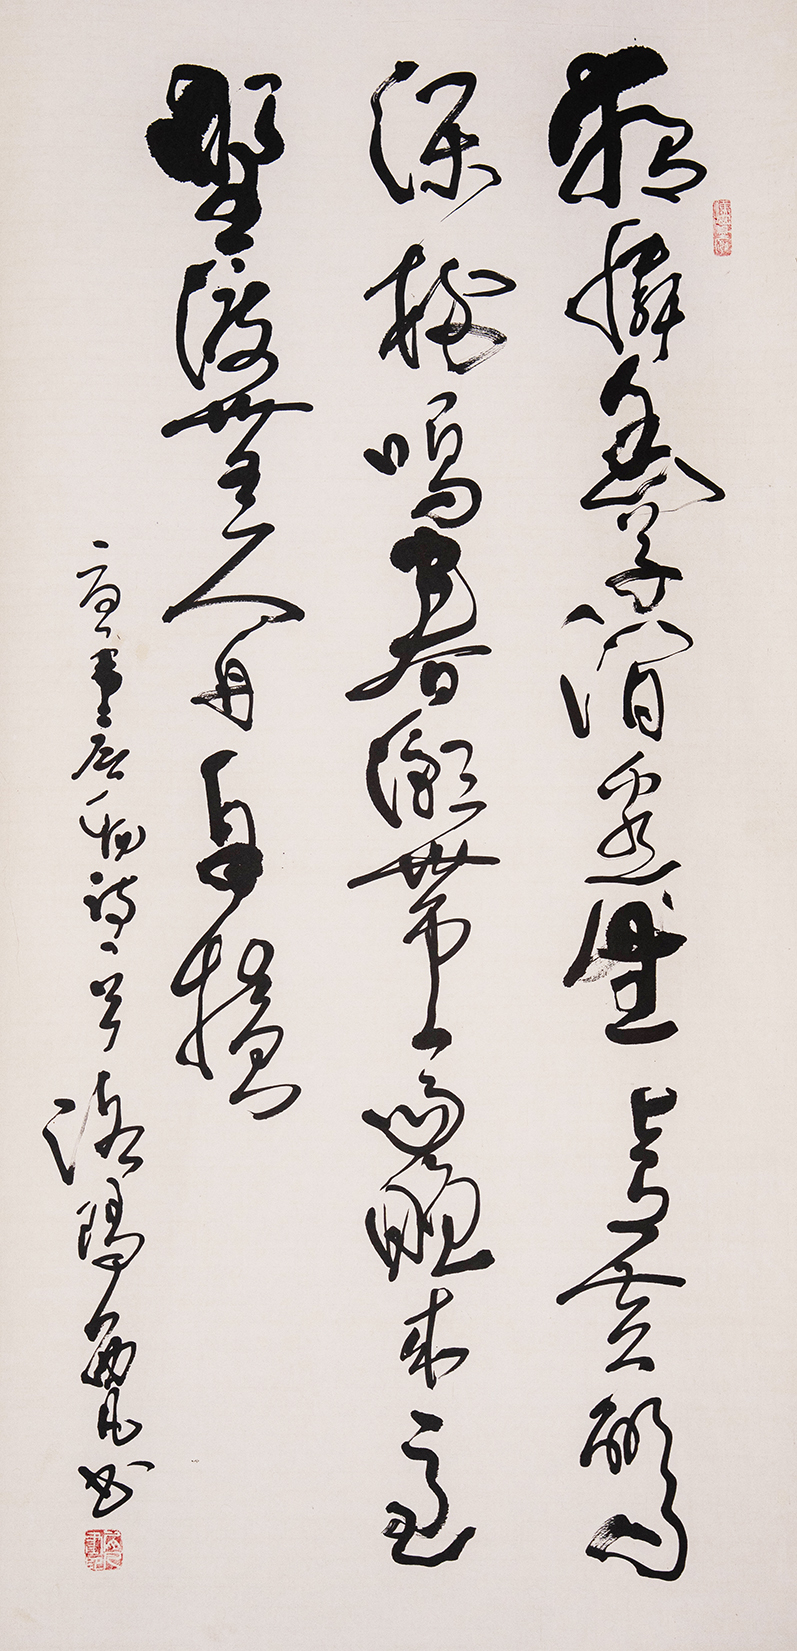 獨憐幽草澗邊生上有黃鸝
深樹鳴春潮帶雨晚來急
野渡無人舟自橫
唐韋應物詩一首 洛陽 書